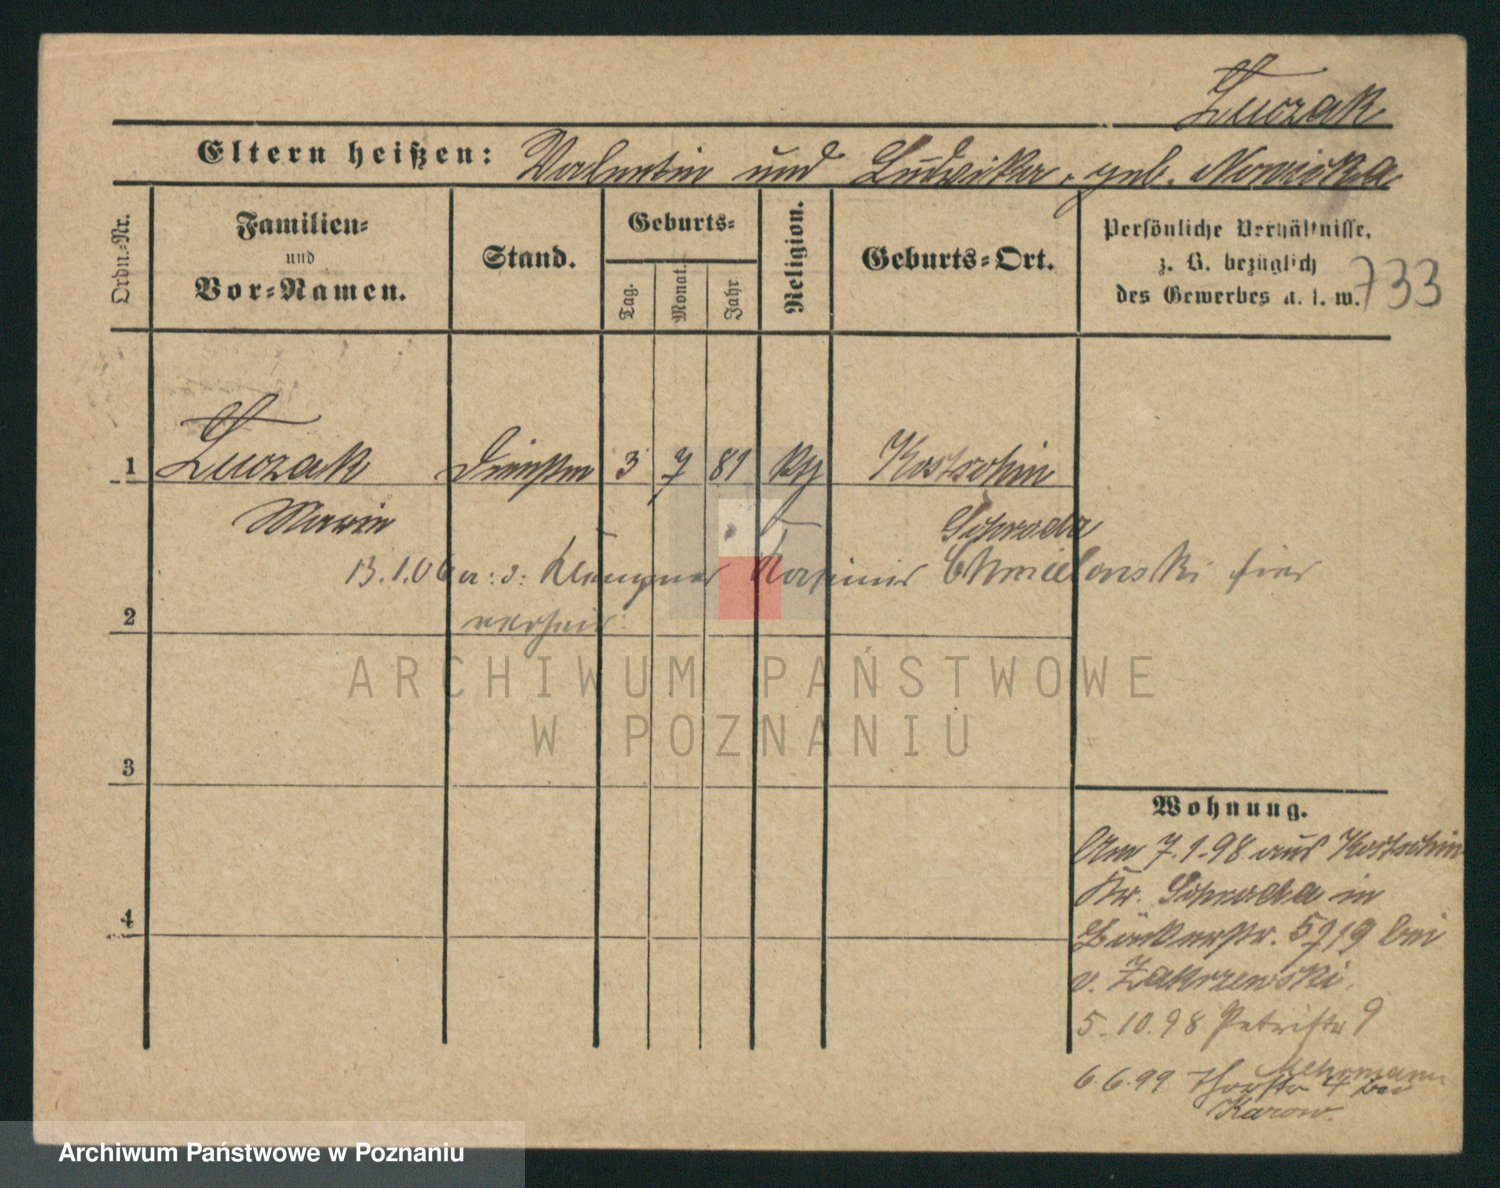 Łuczak
Eltern heißen: Valentin und Ludwika, geb. Nowicka
Ordn.-Nr.
Familien-
und
Vor-Namen.
Stand.
Geburts-
Tag.
Monat.
Jahr
Religion.
Geburts-Ort.
Persönliche Verhältnisse,
z. B. bezüglich
des Gewerbes u. s. w.
733
1 Łuczak 3 7 81 Kostschin
Marie Schroda
13.1.06 Klempner Kasimir Chmielowski hier
2 verheir.
ARCHIWUM PAŃSTWOWE
W POZNANIU
3
Wohnung.
Am 7.1.98 aus Kostschin
Kr. Schroda in
4
Bäckerstr. bei
v. Zakrzewski.
5.10.98 Petristr 9
Mehrmann
6.6.99 4 bei
Karow.
Archiwum Państwowe w Poznaniu